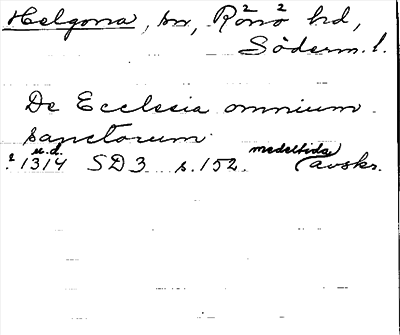 Helgona, sn, Rönö hd,
Söderm. l.
De Ecclesia omnium
sanctorum
u.d. medeltida
? 1314 SD3 s. 152. (avskr.